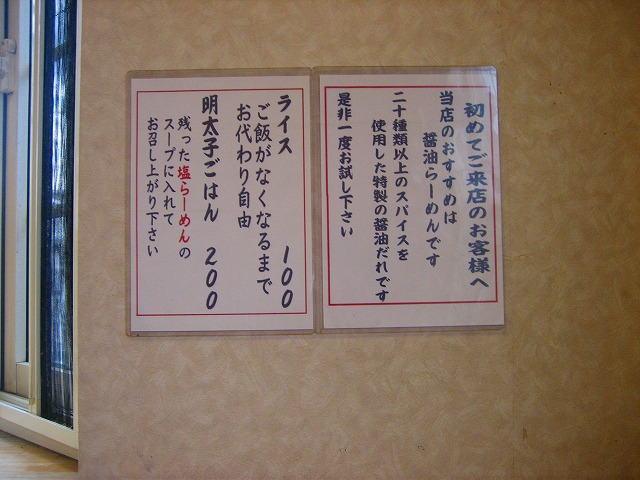 初めてご来店のお客様へ
当店のおすすめは
醤油らーめんです
二十種類以上のスパイスを
使用した特製の醤油だれです
是非一度お試し下さい
ライス 100
ご飯がなくなるまで
お代わり自由
明太子ごはん 200
残った塩らーめんの
スープに入れて
お召し上がり下さい